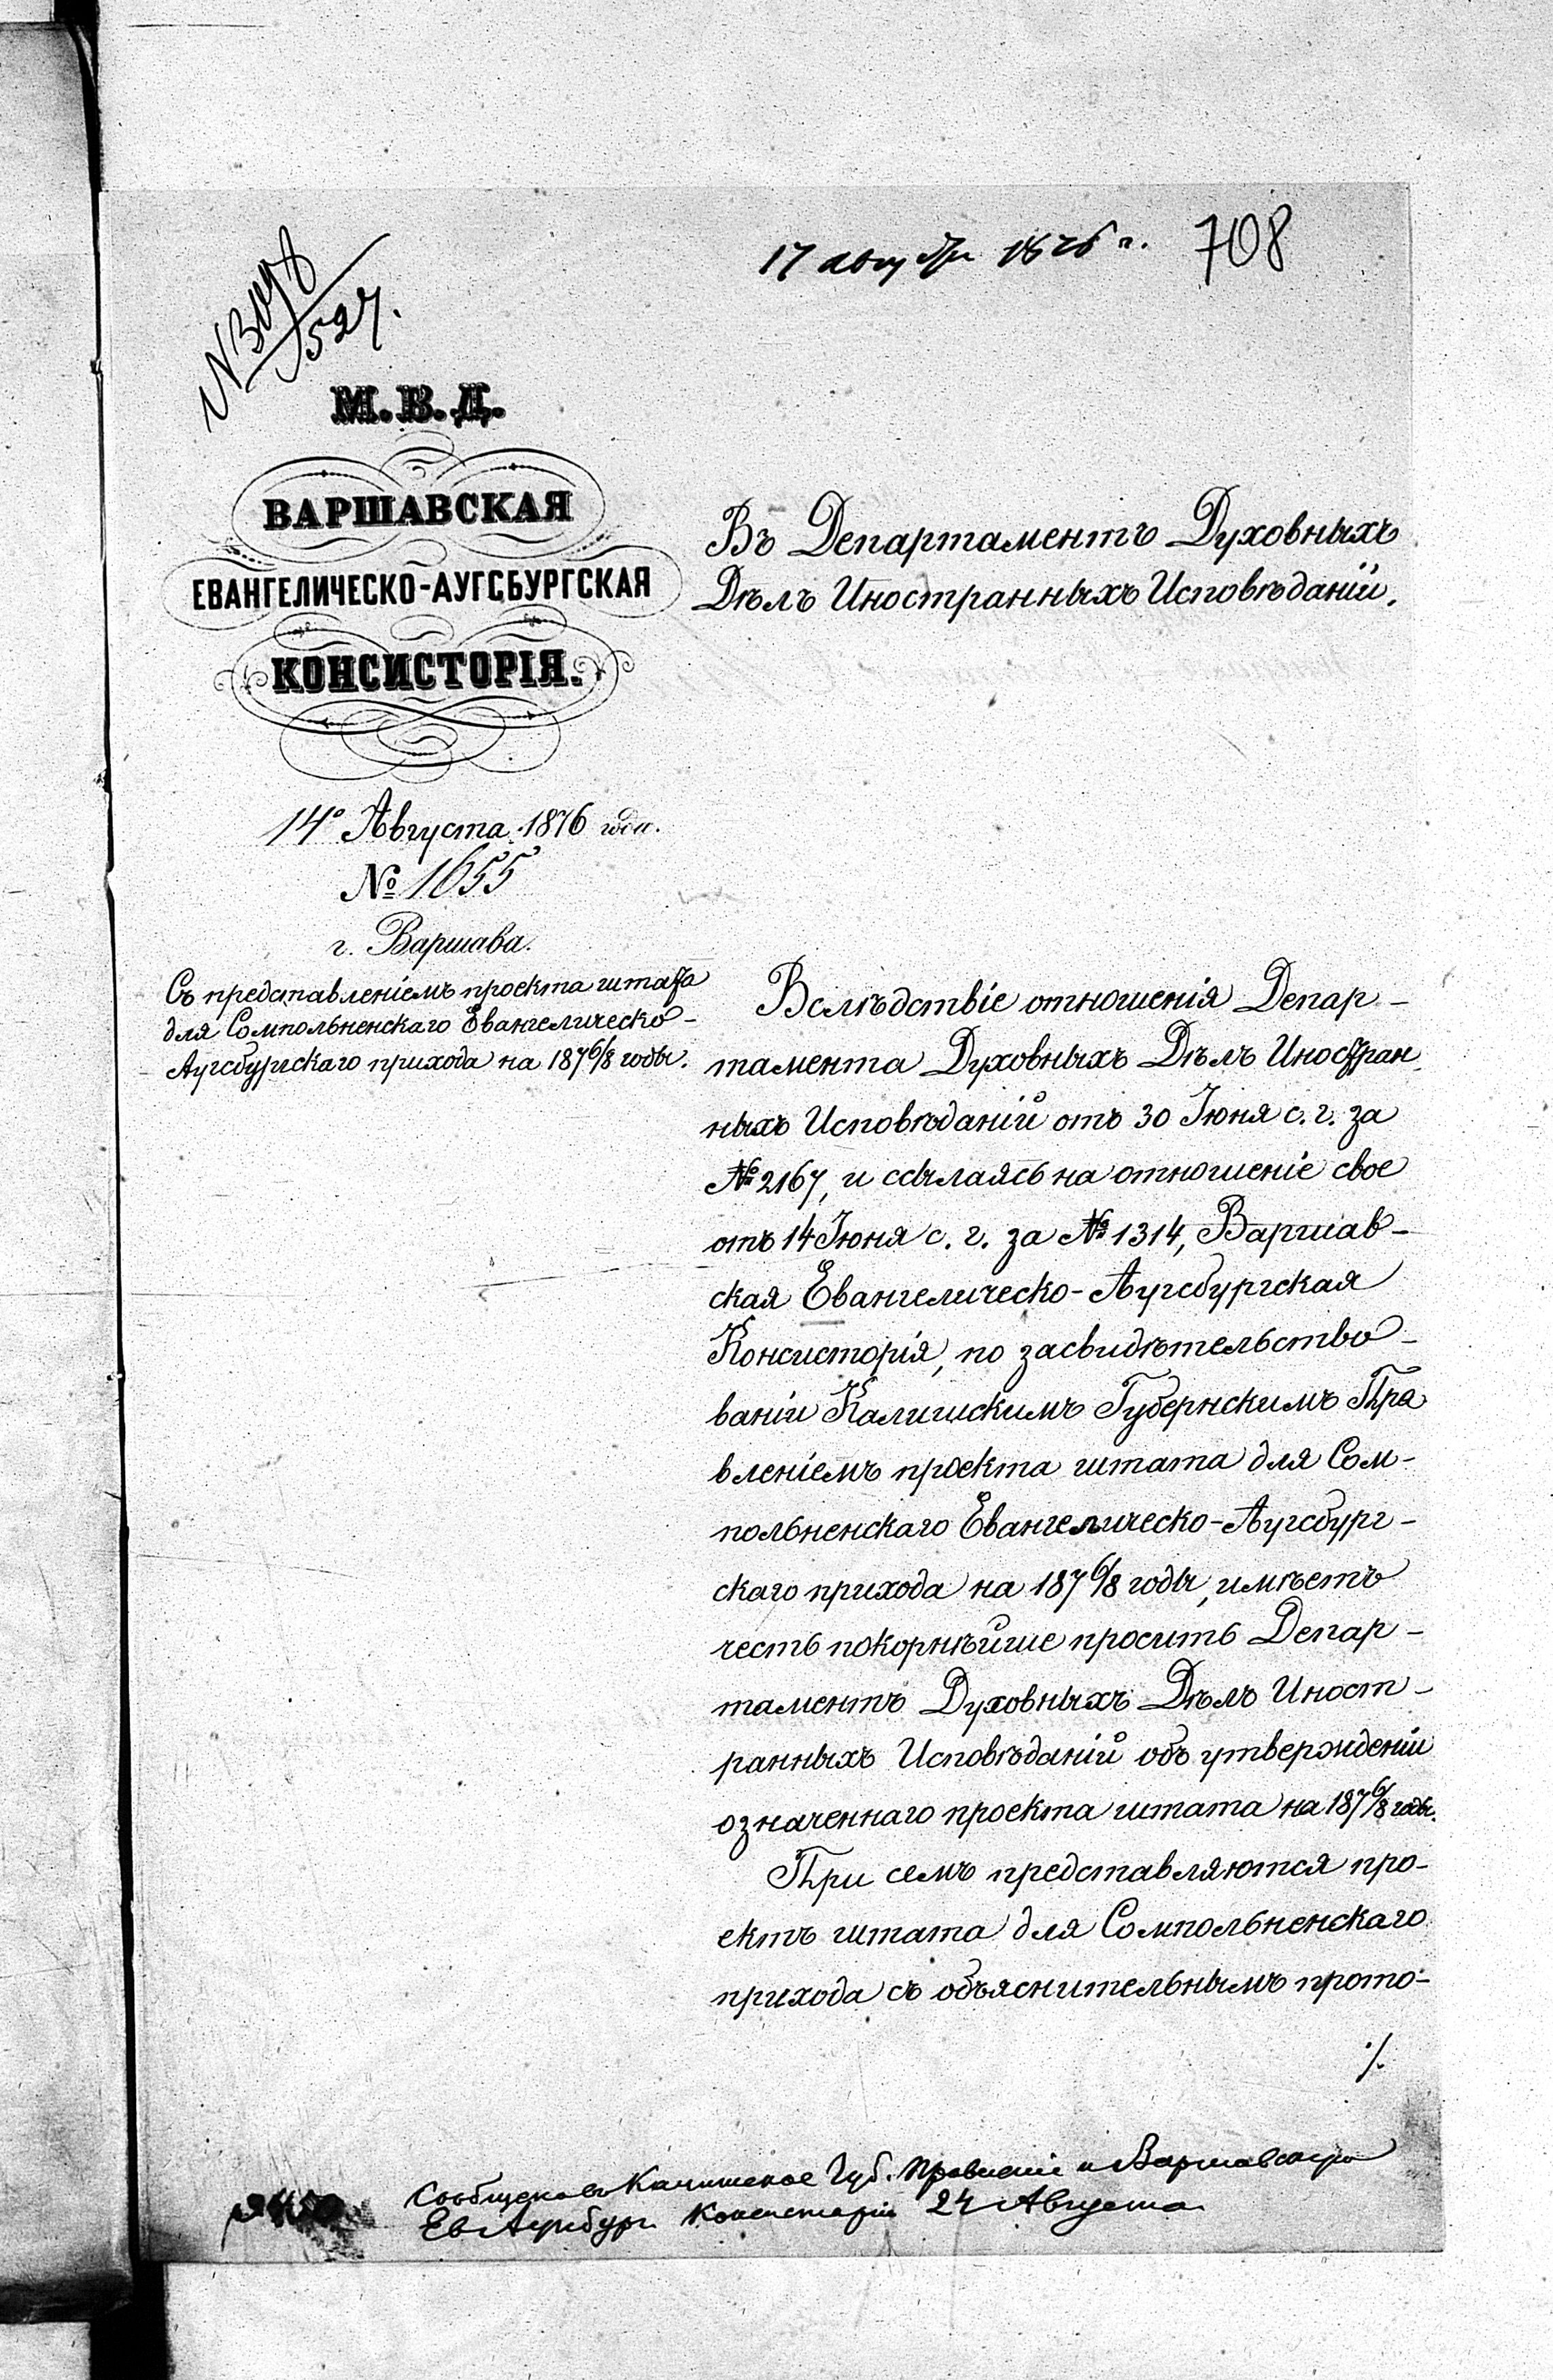 17 августа 1876 г. 708
№ 3098/527.
М. В. Д.
ВАРШАВСКАЯ
ЕВАНГЕЛИЧЕСКО-АУГСБУРГСКАЯ
КОНСИСТОРІЯ.
14го Августа 1876 года.
№ 1655
г. Варшава.
Съ представленіемъ проекта штата
для Сомпольненскаго Евангелическо-
Аугсбургскаго прихода на 1876/8 годы.
Въ Департаментъ Духовныхъ
Дѣлъ Иностранныхъ Исповѣданій.
Вслѣдствіе отношенія Депар-
тамента Духовныхъ Дѣлъ Иностран-
ныхъ Исповѣданій отъ 30 Іюня с. г. за
№ 2167, и ссылаясь на отношеніе свое
отъ 14 Іюня с. г. за № 1314, Варшав-
ская Евангелическо-Аугсбургская
Консисторія, по засвидѣтельство-
ваніи Калишскимъ Губернскимъ Пра
вленіемъ проекта штата для Сом-
польненскаго Евангелическо-Аугсбург-
скаго прихода на 1876/8 годы, имѣетъ
честь покорнѣйше просить Депар-
таментъ Духовныхъ Дѣлъ Иност-
ранныхъ Исповѣданій объ утвержденіи
означеннаго проекта штата на 1876/8 годы.
При семъ представляются про-
ектъ штата для Сомпольненскаго
прихода съ объяснительнымъ прото-
./.
Сообщено въ Калишское Губ. Правленіе и Варшавскую
Ев Аугсбург Консисторію 24 Августа